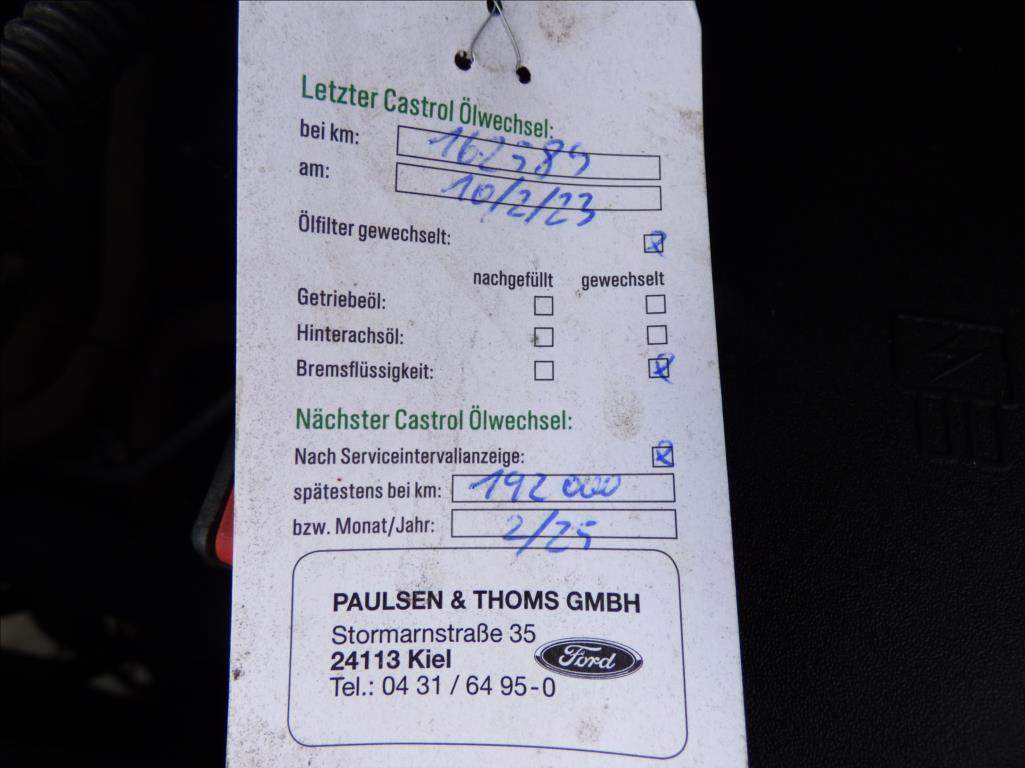 Letzter Castrol Ölwechsel:
bei km: 162585
am: 10/2/23
Ölfilter gewechselt:
nachgefüllt gewechselt
Getriebeöl:
Hinterachsöl:
Bremsflüssigkeit:
Nächster Castrol Ölwechsel:
Nach Serviceintervallanzeige:
spätestens bei km: 192 000
bzw. Monat/Jahr: 2/25
PAULSEN & THOMS GMBH
Stormarnstraße 35
24113 Kiel
Ford
Tel.: 04 31 / 64 95-0